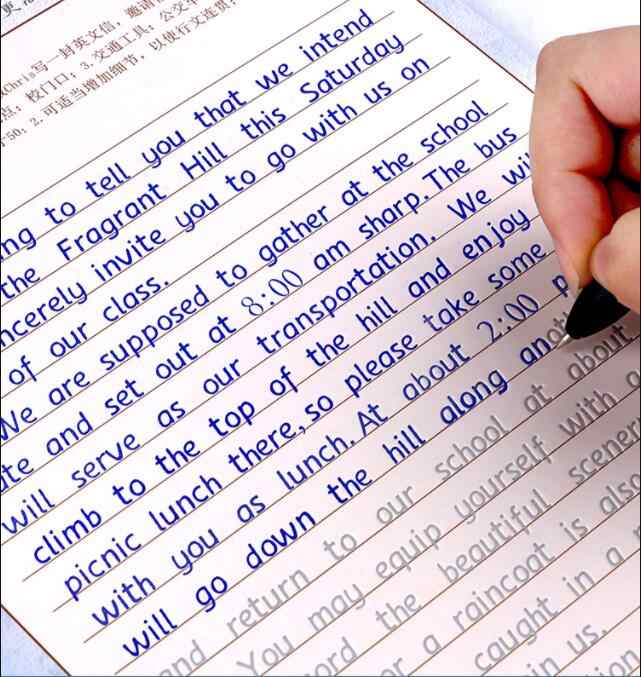 Chris写一封英文信，邀请
点：校门口；3.交通工具：公交车
50；2.可适当增加细节，以使行文连贯；
ng to tell you that we intend
the Fragrant Hill this Saturday
ncerely invite you to go with us on
of our class.
We are supposed to gather at the school
te and set out at 8:00 am sharp. The bus
will serve as our transportation. We wil
climb to the top of the hill and enjoy
picnic lunch there, so please take some
with you as lunch. At about 2:00 p
will go down the hill along anoth
and return to our school at about
You may equip yourself with a
ord the beautiful scener
or a raincoat is also
caught in a
in us.